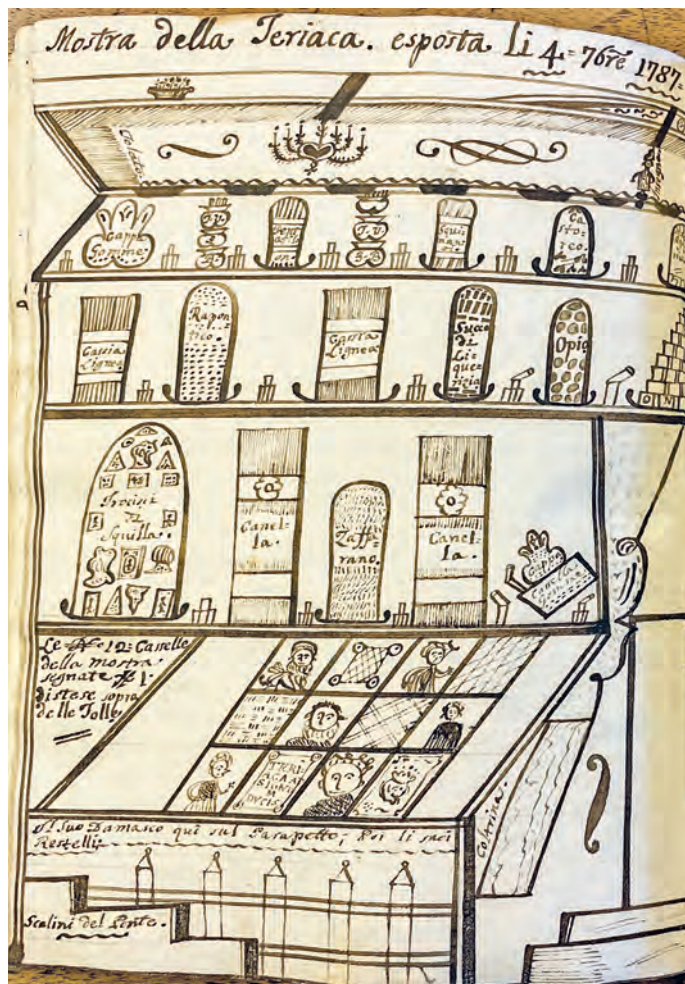 Mostra della Teriaca. esposta li 4 = 76re 1787=
Cappi
Gomme
T.V.
T.V.
S.B
Squi-
nanto
Ca
sto-
reo
Cassia
Lignea
Rapon-
tico.
Cassia
Lignea
Succo
di Li
que-
ricia
Opio
Trocisci
di
Squilla.
Canel-
la.
Zaffa-
rano.
Canel-
la.
Cappa
Canella
Le 12: Casselle
della mostra
segnate
distese sopra
delle Tolle
THERI
ACA AN
SIGNUM
DUCIS
Coltrina.
Il suo Damasco qui sul Parapetto; Poi li suoi
Restelli:
Scalini del Ponte.